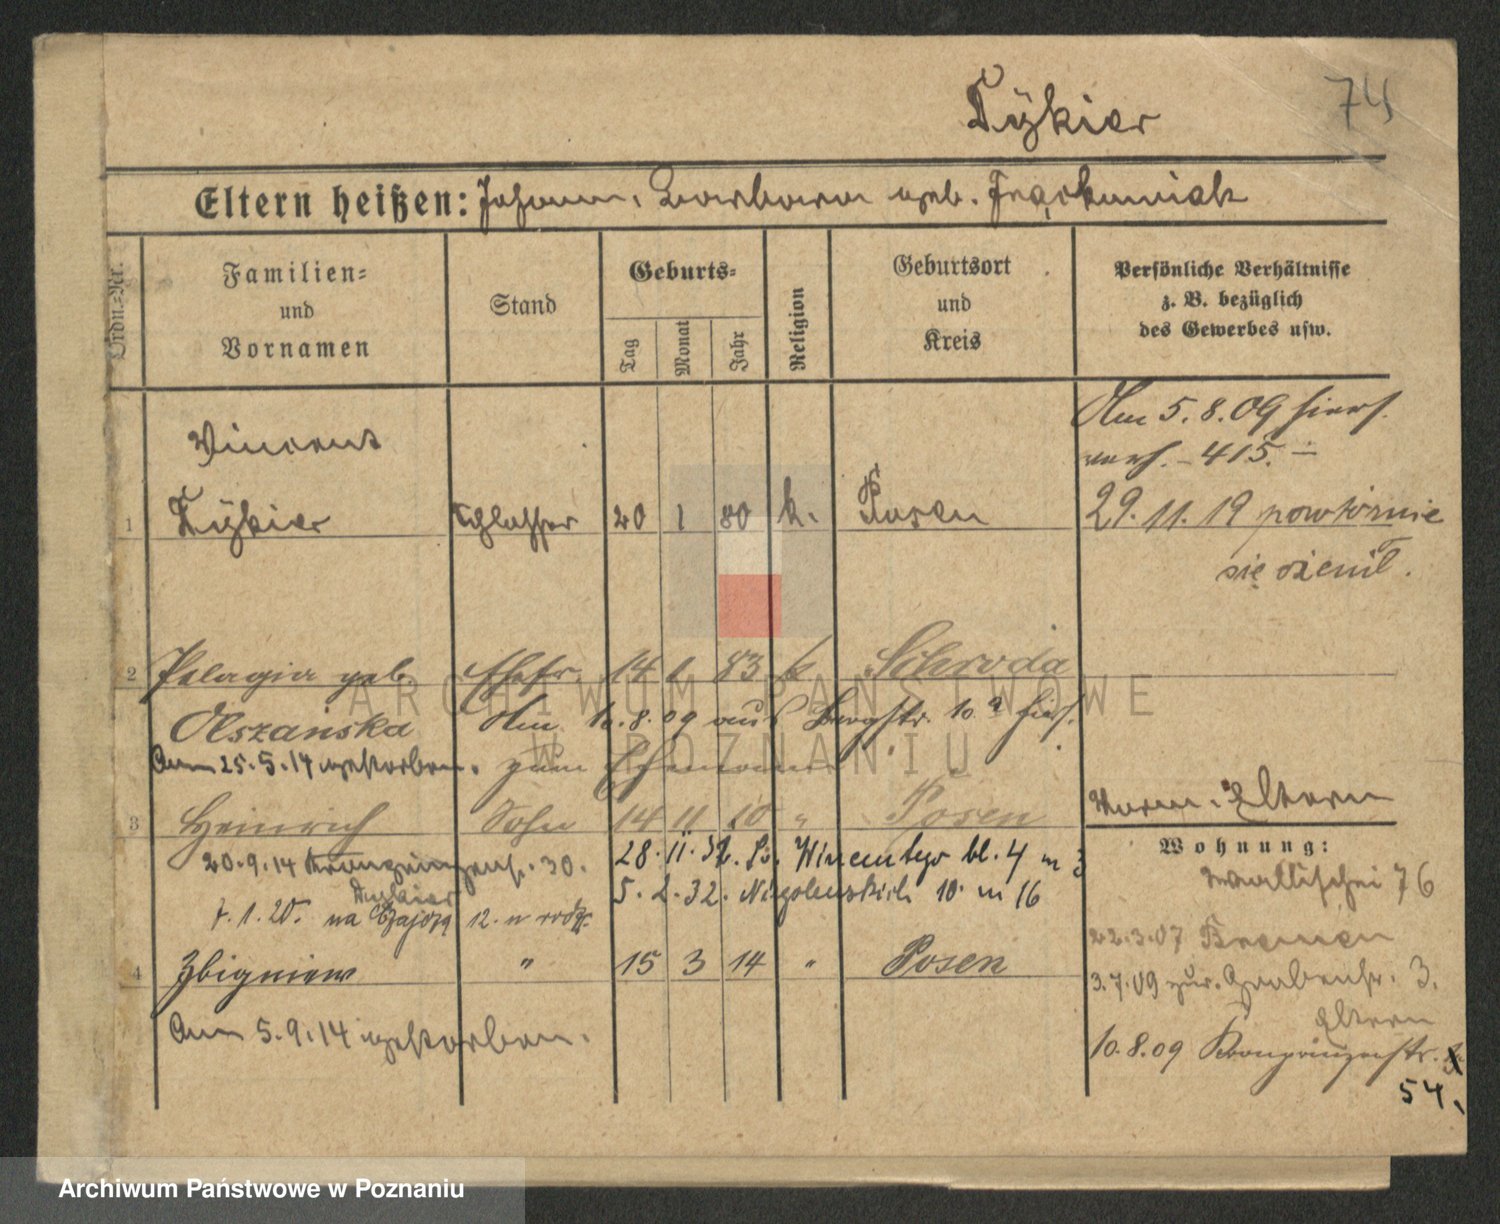 74
Tÿkier
Eltern heißen: Johann, Barbara geb. Frąckowiak
Ordn.-Nr.
Familien-
und
Vornamen
Stand
Geburts-
Tag
Monat
Jahr
Religion
Geburtsort
und
Kreis
Persönliche Verhältnisse
z. B. bezüglich
des Gewerbes usw.
Am 5.8.09 hiers.
verh. - 415. -
Vincent
1 Tÿkier Schlosser 20 1 80 k. Posen
29.11.19 powtórnie
się ożenił.
2 Pelagia geb. Ehefr. 14 1 83 k Schroda
Olszańska Am 10.8.09 aus Bergstr. 10a hies.
Am 25.5.14 gestorben. zum Ehemann
3 Heinrich Sohn 14 11 10 " Posen
20.9.14 Kronprinzenstr. 30.
28.11.31. Św. Wincentego bl. 4 m 3
5.2.32. Niegolewskich 10 m 16
Tykier
7.1.20. na 12. u rodz.
4 Zbigniew " 15 3 14 " Posen
Am 5.9.14 gestorben.
Vorm. Eltern
Wohnung:
Wallischei 76
22.3.07 Bremen
3.7.09 zur. Grabenstr. 3.
Eltern
10.8.09 Kronprinzenstr.
54.
ARCHIWUM PAŃSTWOWE
W POZNANIU
Archiwum Państwowe w Poznaniu